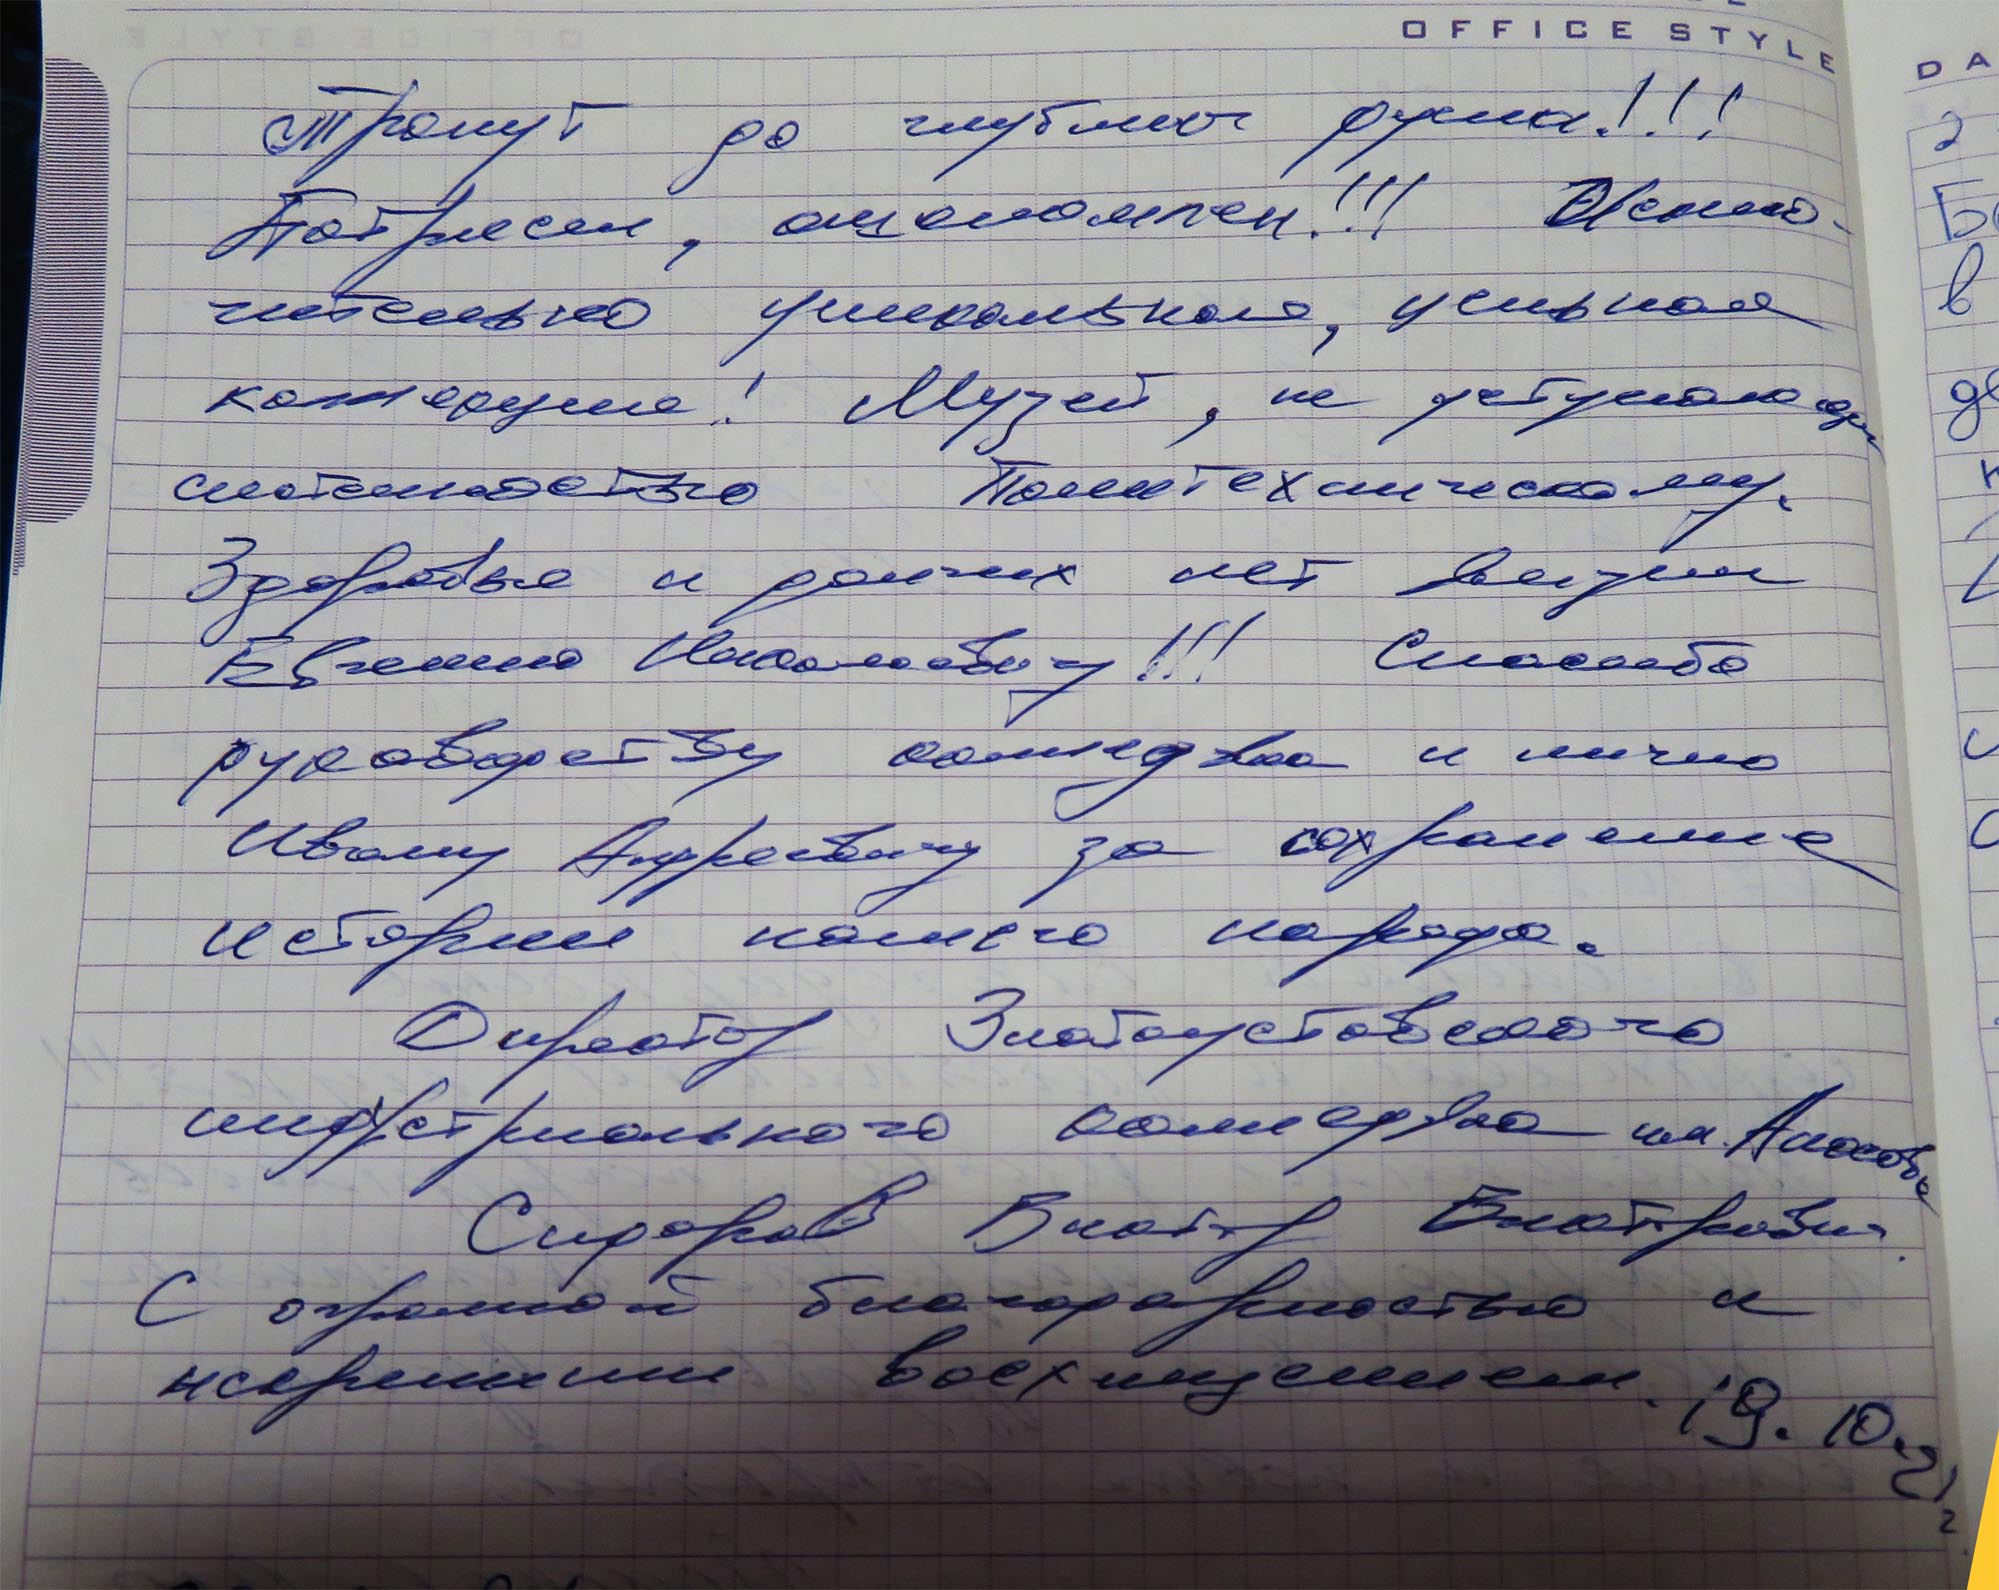 OFFICE STYLE
DA
Тронут до глубины души!!!
Потрясен, ошеломлен!!! Исклю-
чительно уникальная, ценная
коллекция! Музей, не уступающий
Политехническому.
Здоровья и долгих лет жизни
Евгению Николаевичу!!! Спасибо
руководству колледжа и лично
Ивану Андреевичу за сохранение
истории нашего народа.
Директор Златоустовского
индустриального колледжа им. Аносова
Сидоров Виктор Викторович.
С огромной благодарностью и
искренним восхищением. 19.10.21
г